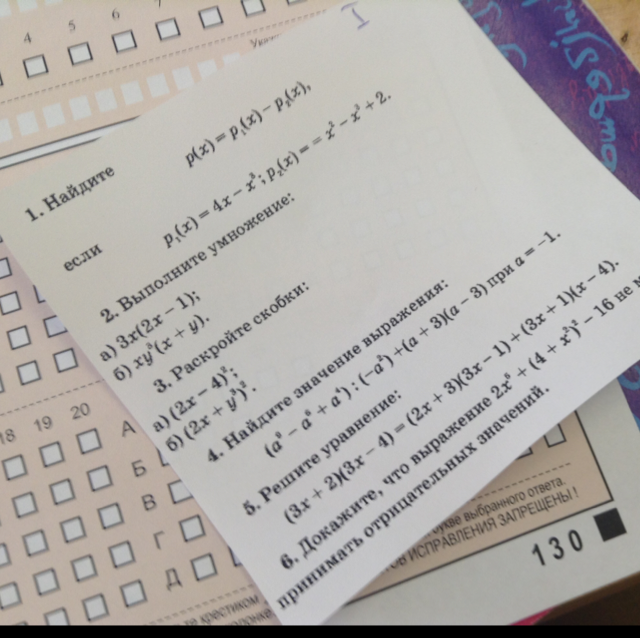 4 5 6 7
I
1. Найдите
p(x) = p₁(x) – p₂(x),
если
p₁(x) = 4x – x³; p₂(x) = = x² – x³ + 2.
2. Выполните умножение:
а) 3x(2x – 1);
б) xy³(x + y).
3. Раскройте скобки:
а) (2x – 4)²;
б) (2x + y³)².
4. Найдите значение выражения:
: (–a²) + (a + 3)(a – 3) при a = –1.
5. Решите уравнение:
(3x + 2)(3x – 4) = (2x + 3)(3x – 1) + (3x + 1)(x – 4).
6. Докажите, что выражение 2x⁶ + (4 + x³)² – 16 не
принимать отрицательных значений.
18 19 20
А
Б
В
Г
Д
букве выбранного ответа.
ИСПРАВЛЕНИЯ ЗАПРЕЩЕНЫ!
крестиком
130